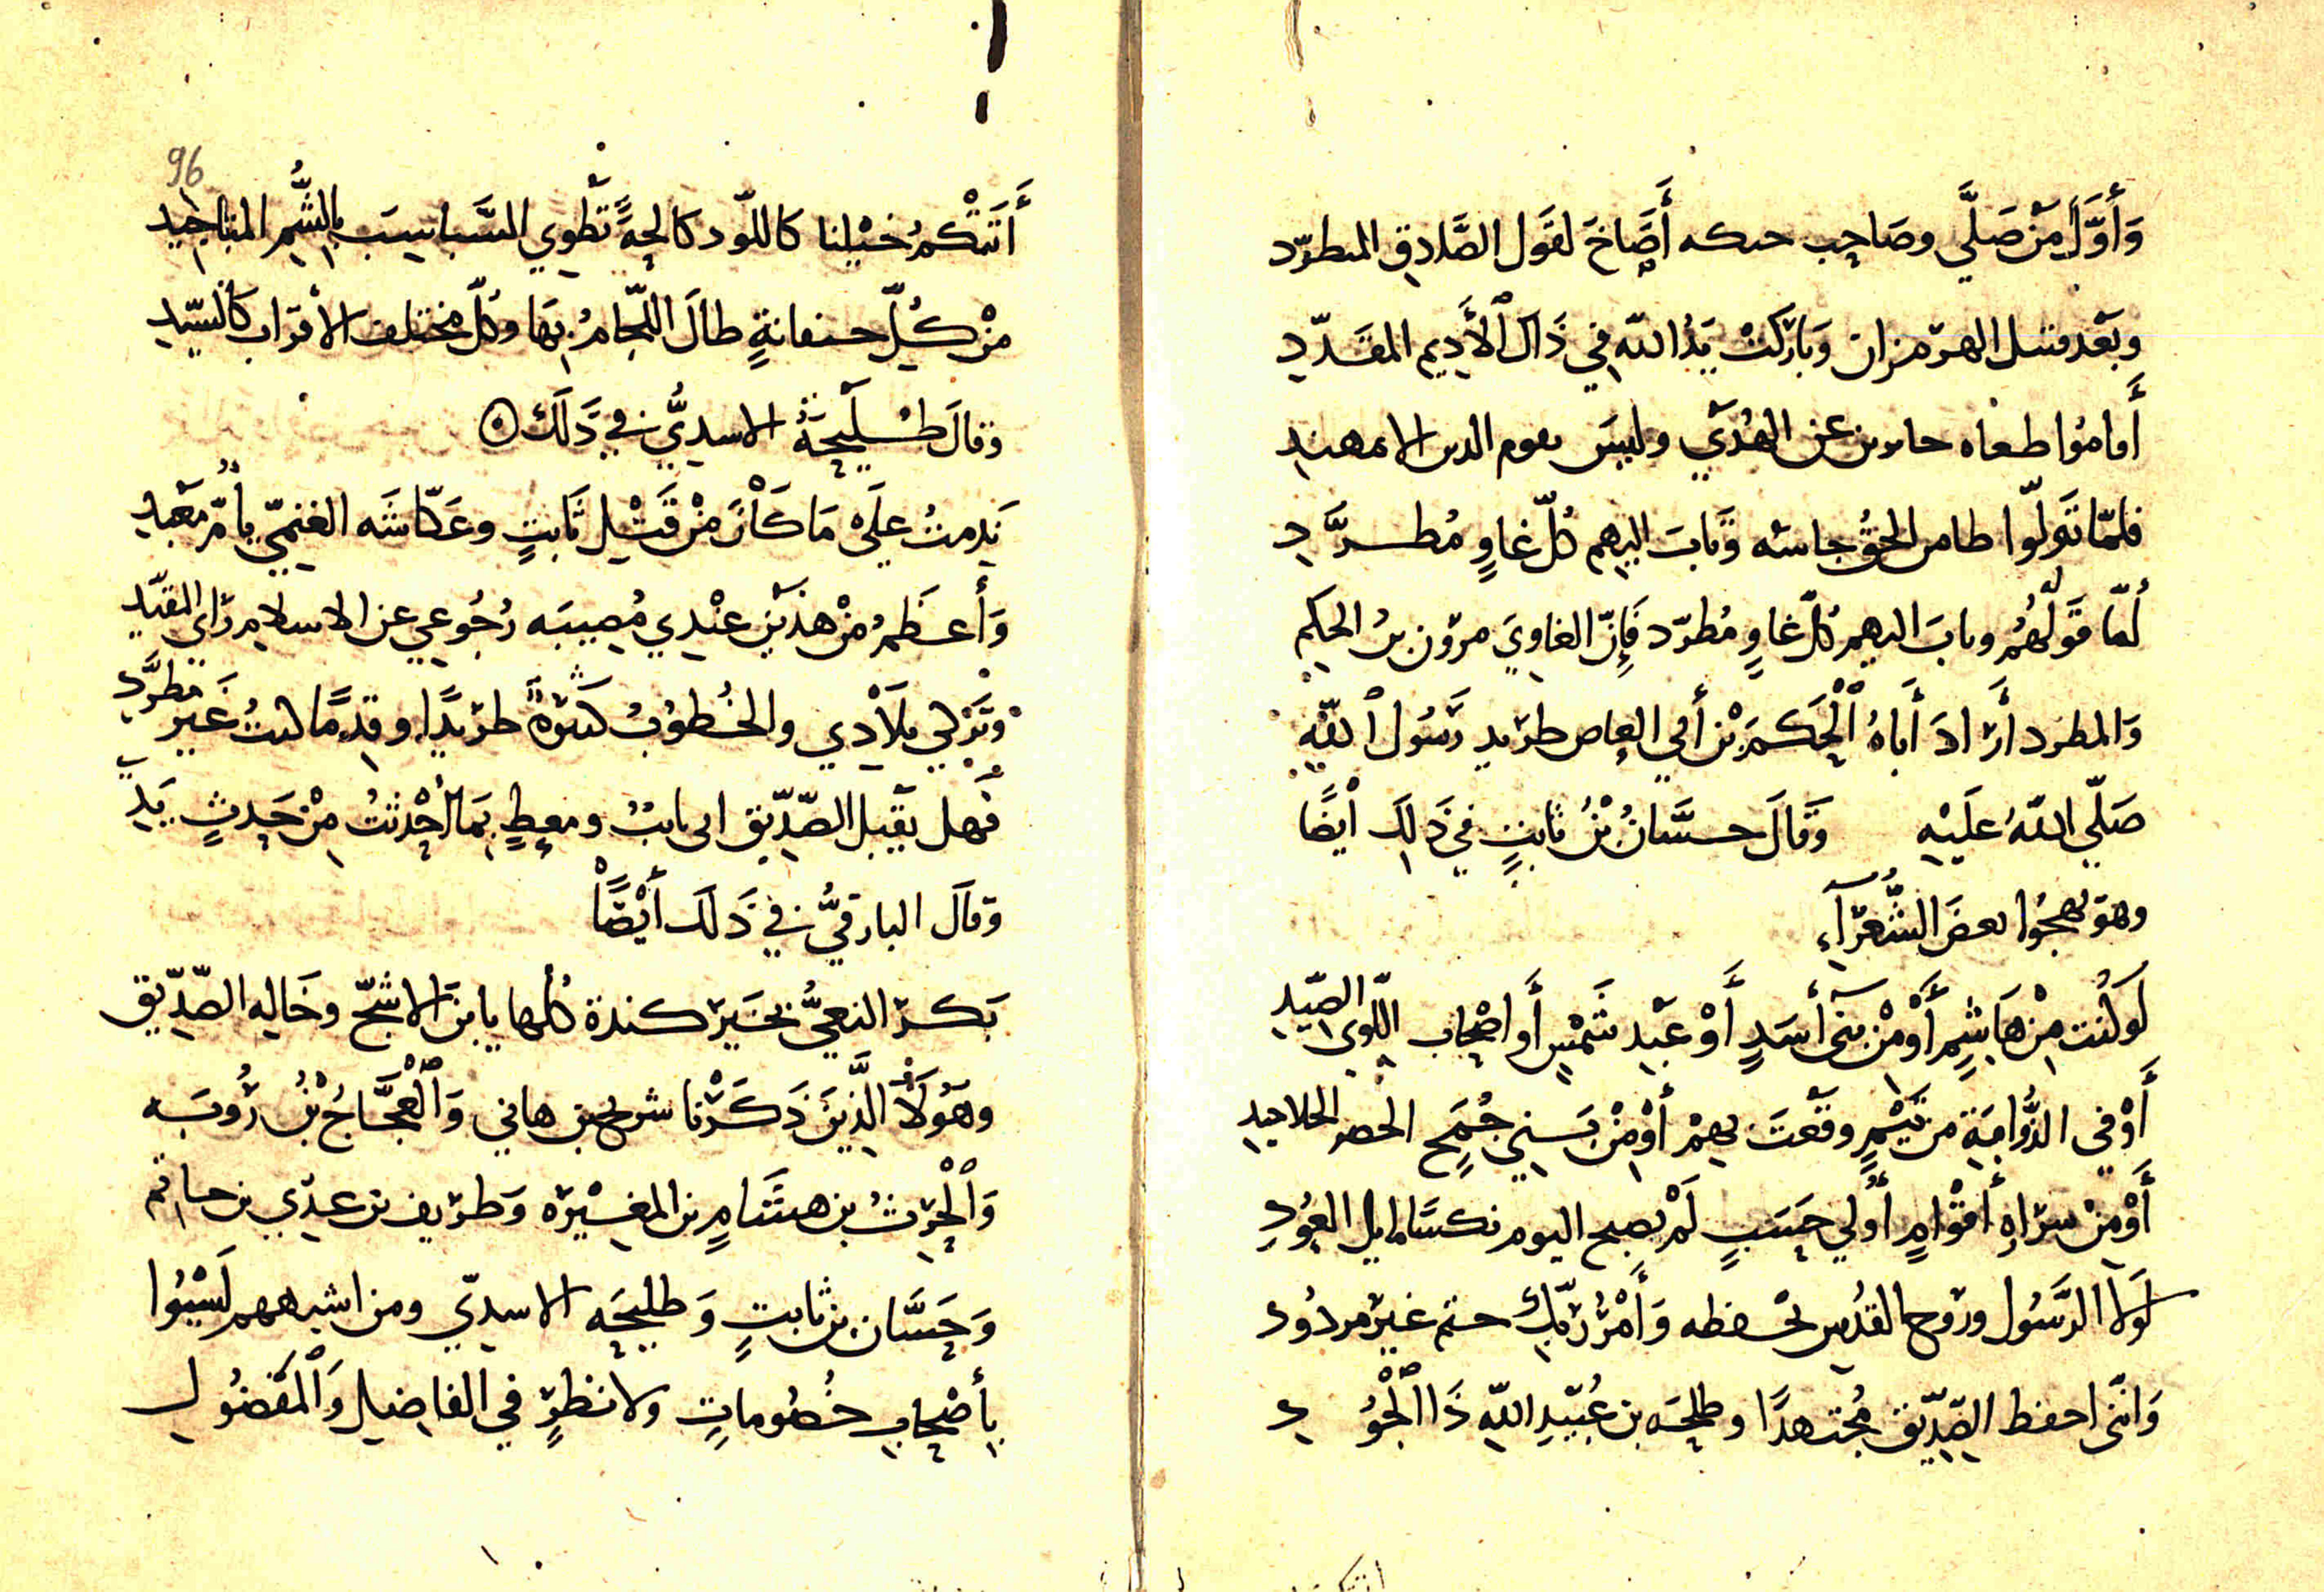 وَأَوَّلَ مَنْ صَلَّي وصَاحِب أَصَاخَ لقَول الصَّادِق المطرّد
وبَعْد الهرمزان وَبَارَكَتْ يَدُ اللّه فِي ذَاكَ الأَدِيم المقَدّدِ
أقامُوا طغاه حايرين عن الهُدَي وليسَ يقوم الدين الا بمهتدِ
فلمّا تَولّوا طامن الحقُّ جاشه وَثابَ اليهِم كُلّ غاوٍ مُطرَّدِ
أمّا قَولُهُم وثابَ اليهم كلّ غاوٍ مُطرّد فَإِنّ الغاوِيَ مروٰن بنُ الحكِم
وَالمطرد أَرَادَ أَبَاهُ ٱلْحَكَم بْن أَبي العاِص طريد رَسُول ٱللّهِ
صَلّي اللّهُ علَيْهِ وَقَالَ حسَّانُ بْنُ ثَابتٍ فِي ذَلِكَ أيْضًا
وهوَ يهجُوا بعضَ الشُّعَرَآءِ
لَو كُنت مِنْ هَاشِمٍ أَوْ مِنْ بَني أَسَدٍ أَوْ عَبْدِ شَمْسٍ أو اصْحَابِ اللّوي الصِّيدِ
أَوْ في الذُّوابَةِ من تَيْمٍ وقَعْتَ بهِمْ أوْ مِنْ بَنِي جُمَحِ الخضر الجلاعيد
أَوْ مِنْ سرَاةِ أقْوَامٍ أُولي حَسَبٍ لَمْ يصبح اليوم نكسًا مايل العُودِ
لَولا الرَّسُول وروح القدُسِ يحْفظه وَأَمْرُ رَبّك حتم غير مردُود
وَانّني احفظ الصِّدِّيق مُجْتهدًا وطلحَة بن عُبَيْدِ اللّهِ ذَا ٱلْجُودِ
96
أَتَتْكمُ خَيْلنا كاللّود كالحةً تَطوِي السَّبَاسِبَ بِالشُّمِ المناجِيدِ
منْ كُلّ خيفانةٍ طالَ اللّجامُ بِهَا وكُلّ مختلف الأقرَاب كالسِّيدِ
وَقالَ طُلَيحَةُ الاسديُّ فِي ذَلَكَ
نَدِمتُ علَى مَا كَانَ مِنْ قَتْلِ ثَابتٍ وعَكّاشَه الغنمِيّ يا أُمّ مَعْبَدِ
وَأَعظَمُ مِنْ هذَيْن عنْدِي مُصِيبَه رُجُوعِي عن الاسلامِ رَاي المقيّدِ
وَتَرْكِي بلَادِي والخُطوبُ كثيرةً طَرِيدًا وقِدْمًا كنتُ غَيْر مُطَرَّدِ
فَهل يَقْبل الصِّدِّيق انى تايبٌ ومعطٍ بِمَا أَحْدَثتُ مِنْ حَدثٍ يَدِي
وَقالَ البارقيُّ فِي ذَلَكَ أَيْضًا
بَكرَ النعِيُّ بخَيْرِ كندة كُلّها يا بن الاشجّ وخَالِه الصِّدِّيق
وهَؤُلَا الَّذِينَ ذَكَرْنا شريح بن هاني وَٱلْعَجَّاجُ بْنُ رُوبَه
وَٱلْحَرِثُ بن هشَامٍ بن المغيْرَه وَطريف بن عديّ بن حاتم
وَحَسَّان بن ثابتٍ وَطليحَه الاسدِيّ ومن اشبههم لَيْسُوا
بأصْحَابِ خُصُومَاتٍ ولا نظرٍ في الفاضِل وَٱلْمَفْضُول